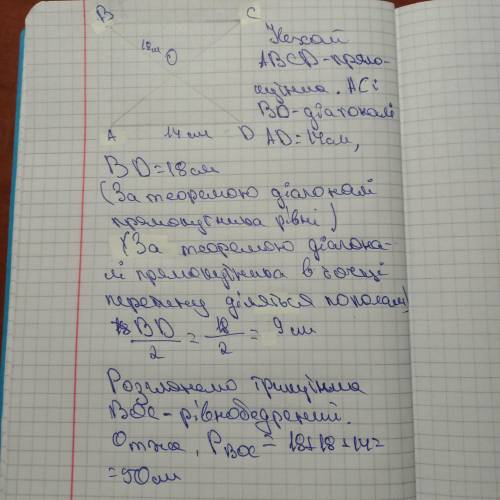 B C
18см
O
Нехай
ABCD-прямо-
кутник. AC і
BD-діагоналі
A 14 см D AD=14см,
BD=18см
(За теоремою діагоналі
прямокутника рівні)
(За теоремою діагона-
лі прямокутника в точці
перетину діляться пополам)
BD/2 = 18/2 = 9 см
Розглянемо трикутник
BOC-рівнобедрений.
Отже, P BOC = 18+18+14=
=50см